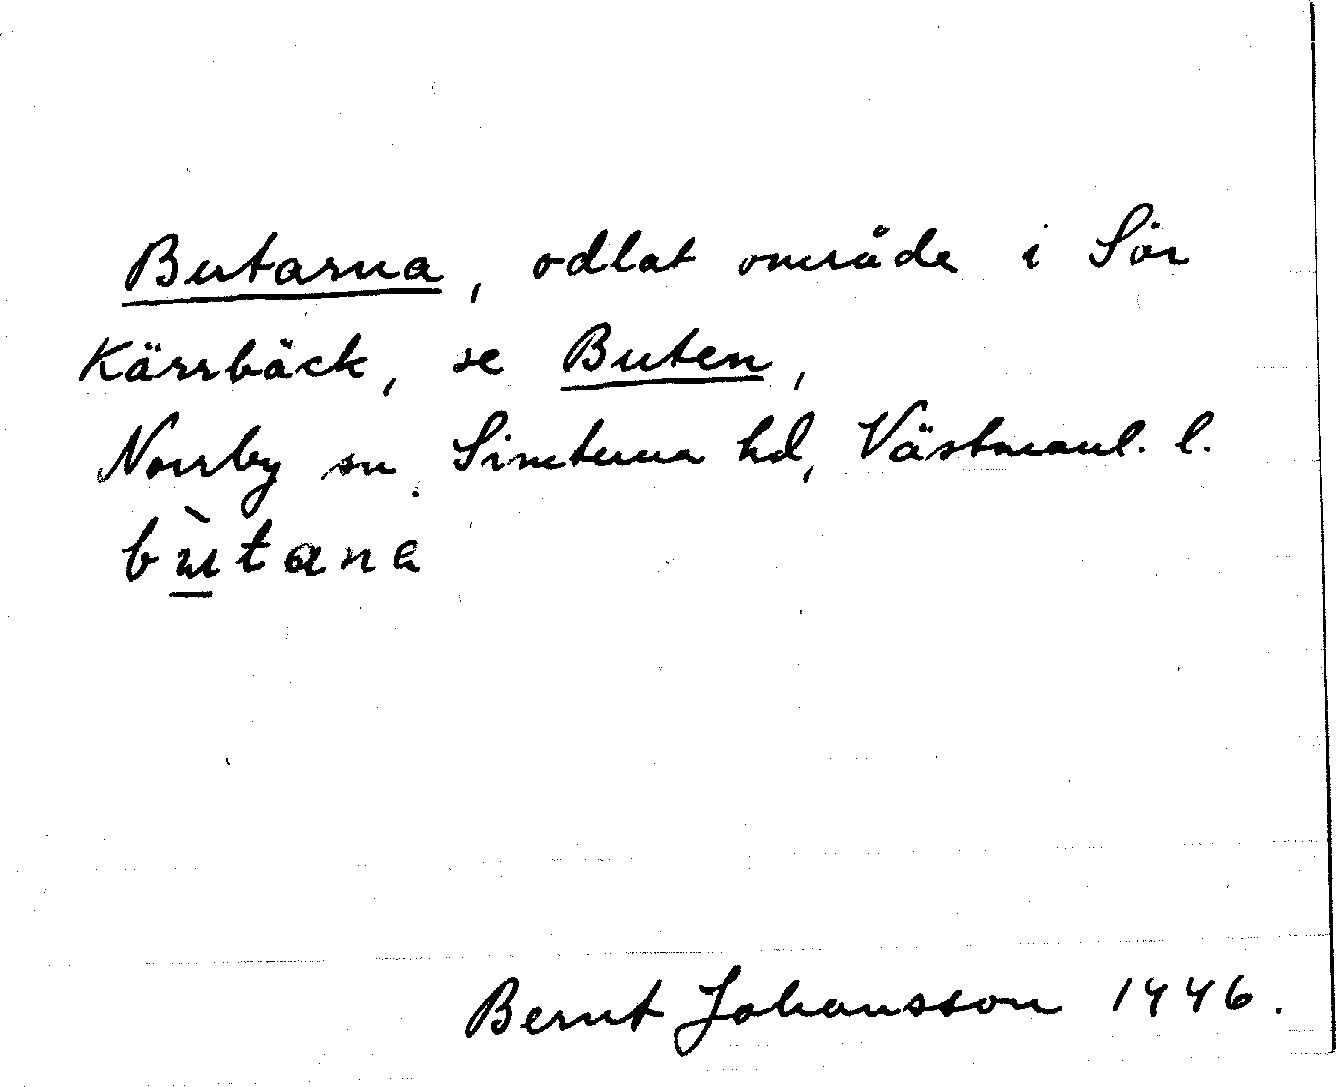 Butarna, odlat område i Sör
Kärrbäck, se Buten,
Norrby sn. Simtuna hd, Västmanl. l.
bù̱tana
Bernt Johansson 1946.